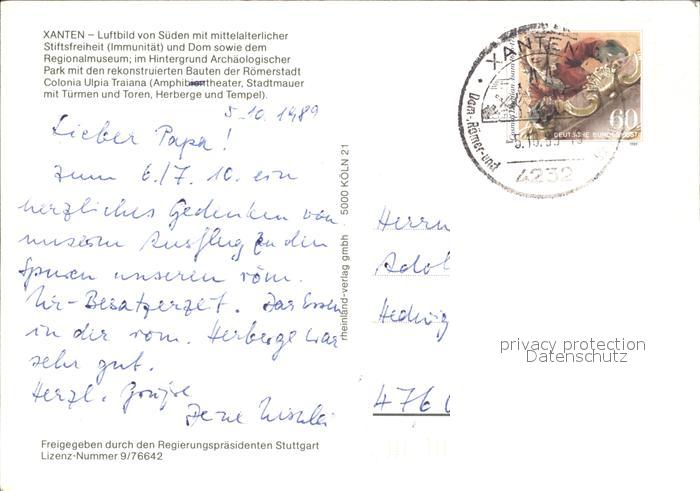 XANTEN – Luftbild von Süden mit mittelalterlicher
Stiftsfreiheit (Immunität) und Dom sowie dem
Regionalmuseum; im Hintergrund Archäologischer
Park mit den rekonstruierten Bauten der Römerstadt
Colonia Ulpia Traiana (Amphitheater, Stadtmauer
mit Türmen und Toren, Herberge und Tempel).
5.10.1989
Lieber Papa!
zum 6./7. 10. ein
herzliches Gedenken von
unserem Ausflug zu den
Spuren unseren röm.
Ur-Besatzerzeit. Das Essen
in der röm. Herberge war
sehr gut.
Herzl. Grüße
Freigegeben durch den Regierungspräsidenten Stuttgart
Lizenz-Nummer 9/76642
rheinland-verlag gmbh · 5000 KÖLN 21
XANTEN
Dom-, Römer- und
4232
60
DEUTSCHE BUNDESPOST
Herrn
Adol
Hedwig
476
privacy protection
Datenschutz